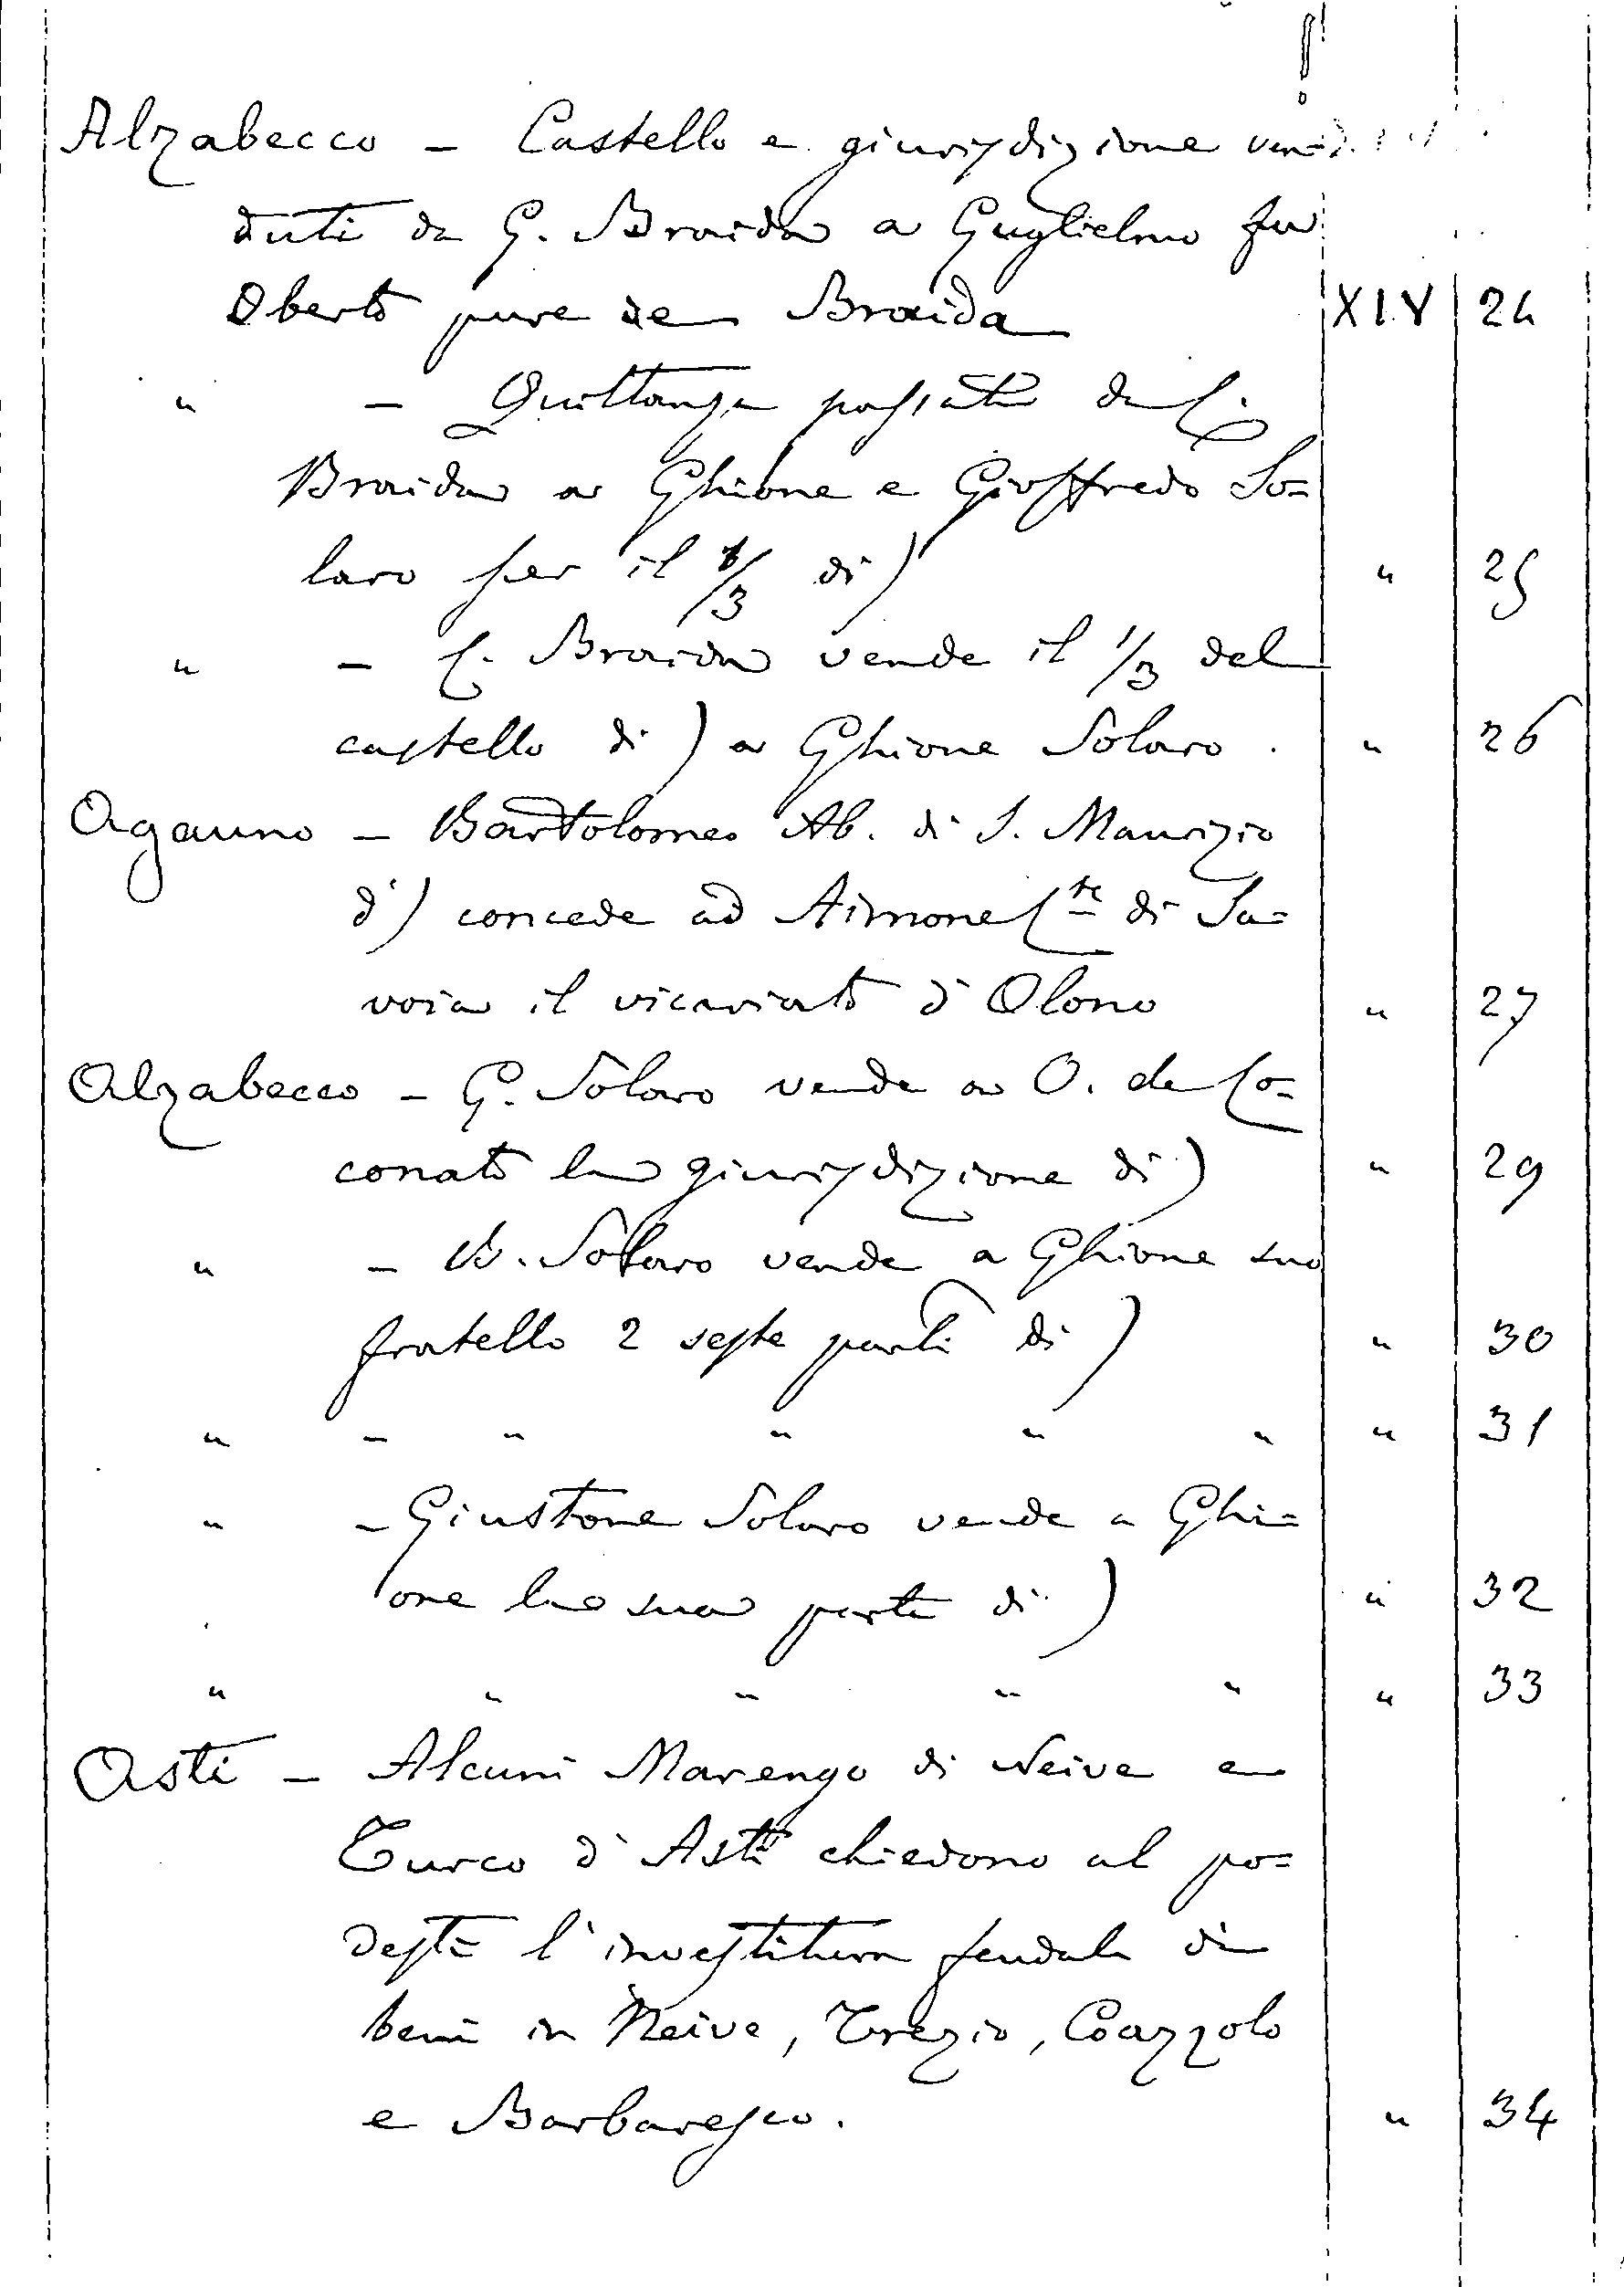 Alzabecco – Castello e giurisdizione ven=
duti da G. Braida a Guglielmo fu
Oberto pure de Braida XIV 24
" – Quittanza passata da C.
Braida a Ghione e Gioffredo So=
laro per il 1/3 di) " 25
" – C. Braida vende il 1/3 del
castello di) a Ghione Solaro. " 26
Agauno – Bartolomeo Ab. di S. Maurizio
d') concede ad Aimone Cte di Sa=
voia il vicariato d'Olono " 27
Alzabecco – G. Solaro vende a O. de Co=
conato la giurisdizione di) " 29
" – B. Solaro vende a Ghione suo
fratello 2 seste parti di) " 30
" – " " " " " 31
" – Giustone Solaro vende a Ghi=
one la sua parte di) " 32
" " " " " " 33
Asti – Alcuni Marengo di Neive e
Turco d'Asti chiedono al po=
destà l'investitura feudale di
beni in Neive, Trezio, Coazzolo
e Barbaresco. " 34